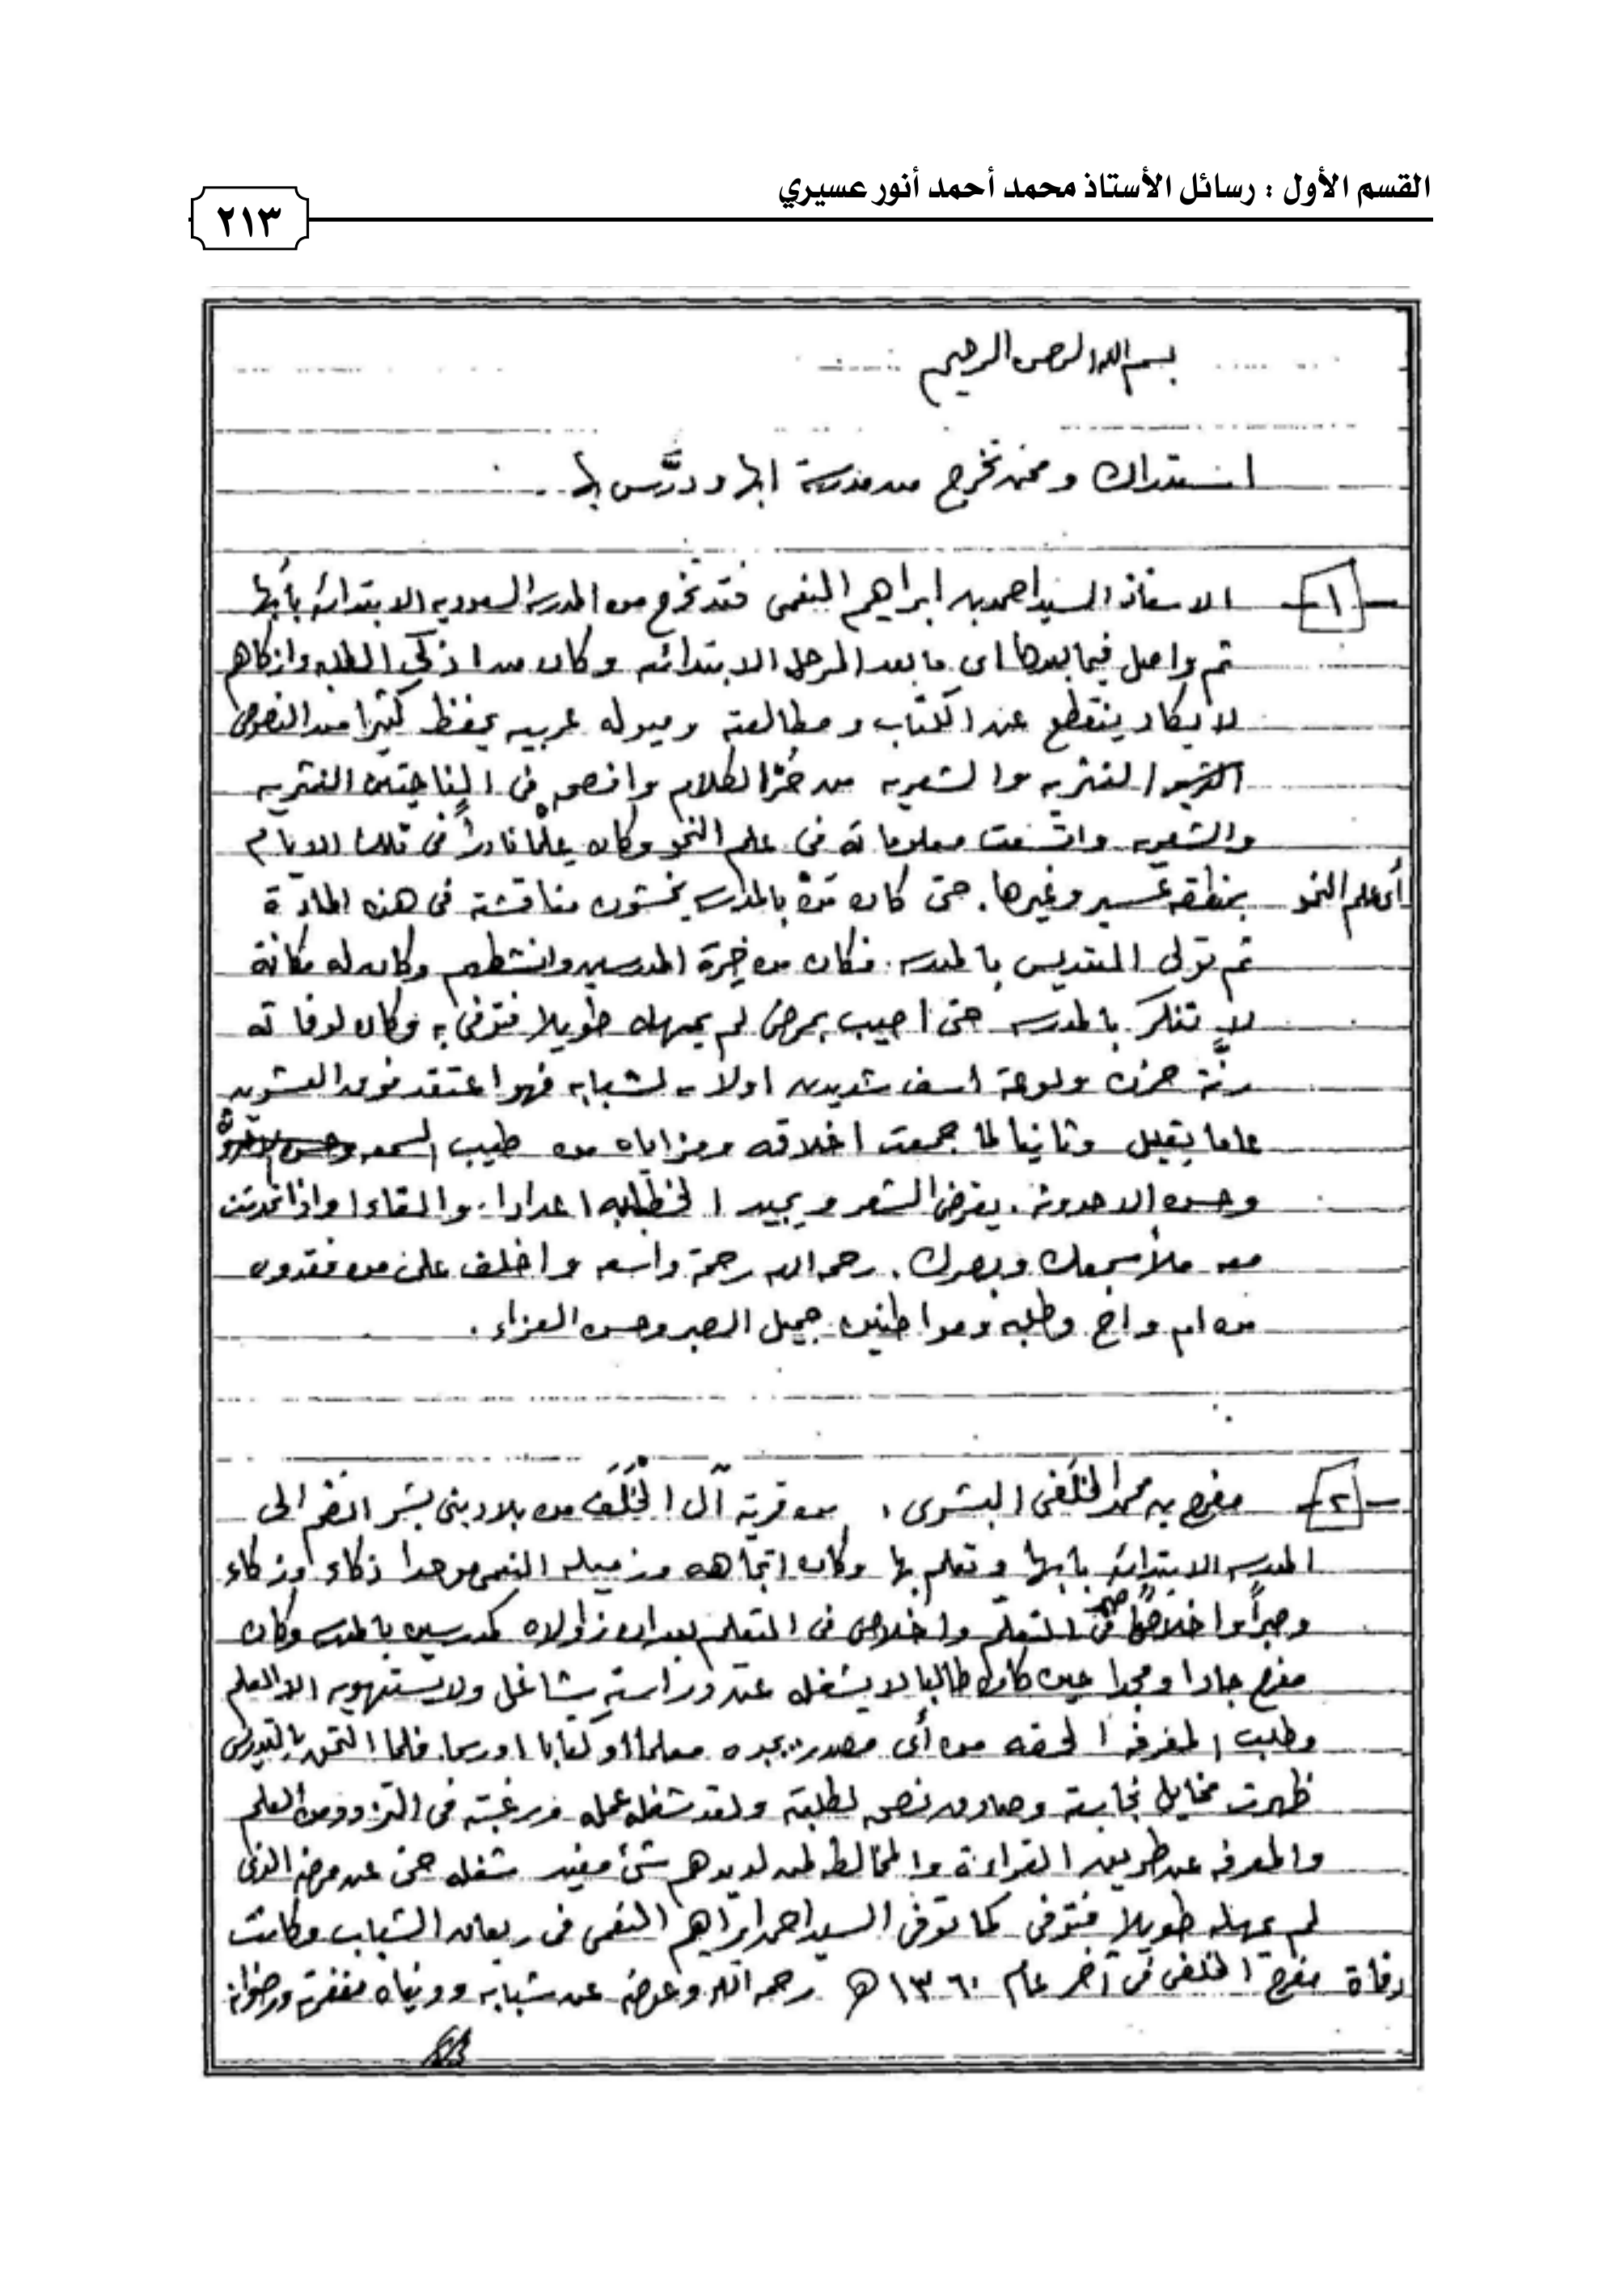 القسم الأول : رسائل الأستاذ محمد أحمد أنور عسيري
٢١٣
بسم الله الرحمن الرحيم
استدراك وممن تخرج من مدرسة ابها ودرَّس بها
١ الاستاذ السيد احمد بن ابراهيم النعمى فقد تخرج من المدرسه السعوديه الابتدائيه بأبها
ثم واصل فيما بعدها اى ما بعد المرحله الابتدائيه وكان من اذكى الطلبه وازكاهم
لا يكاد ينقطع عن الكتاب ومطالعته وميوله عربيه يحفظ كثيرا من النصوص
النثريه والشعريه من الكلام وافصحه فى الناحيتين النثريه
والشعريه واتسعت معلوماته فى علم النحو وكان علمًا نادراً فى تلك الايام
أى علم النحو بمنطقة عسير وغيرها. حتى كان بالمدرسه يخشون مناقشته فى هذه المادة
ثم تولى التدريس بالمدرسه. فكان من خيرة المدرسين وانشطهم وكان له مكانة
لا تنكر بالمدرسه حتى اصيب بمرض لم يمهله طويلا فتوفى به وكان لوفاته
رنَّة حزن ولوعة اسف شديدين اولا لشبابه فهو اعتقد فوق العشرين
عاما بقليل وثانيا لما جمعت اخلاقه ومزاياه من طيب السمعه
وحسن الاحدوثه. يقرض الشعر ويجيد الخطابه اعدادا. والقاءا واذا تحدثت
معه ملأ سمعك وبصرك. رحمه الله رحمة واسعه واخلف على من فقدوه
من ام واخ وطلبه ومواطنين جميل الصبر وحسن العزاء.
٢ مفرح بن محمد الخَلَفى البشرى، من قرية آل الخَلَف من بلاد بنى بشر انضم الى
المدرسه الابتدائيه بابها وتعلم بها وكان اتجاهه وزميله النعمى موحدا ذكاء وزكاء
وصبراً واخلاصًا فى التعلّم واخلاص فى التعليم بعد ان زاولاه كمدرسين بالمدرسه وكان
مفرح جادا ومجدا حين كان طالبا لا يشغله عن دراسته شاغل ولا يستهويه الا العلم
وطلب المعرفه الحقه من أى مصدر يجده معلما او كتابا او رسما. فلما التحق بالتدريس
ظهرت مخايل نجابته وصادق نصحه لطلبته ولقد شغله عمله ورغبته فى التزود من العلم
والمعرفه عن طريق القراءة والمخالطه لمن لديهم شئ مفيد شغله حتى عن مرضه الذى
لم يمهله طويلا فتوفى كما توفى السيد احمد ابراهيم النعمى فى ريعان الشباب وكانت
وفاة مفرح الخلفى فى آخر عام ١٣٦٠ هـ رحمه الله وعوضه عن شبابه ودنياه مغفرة ورضوانا